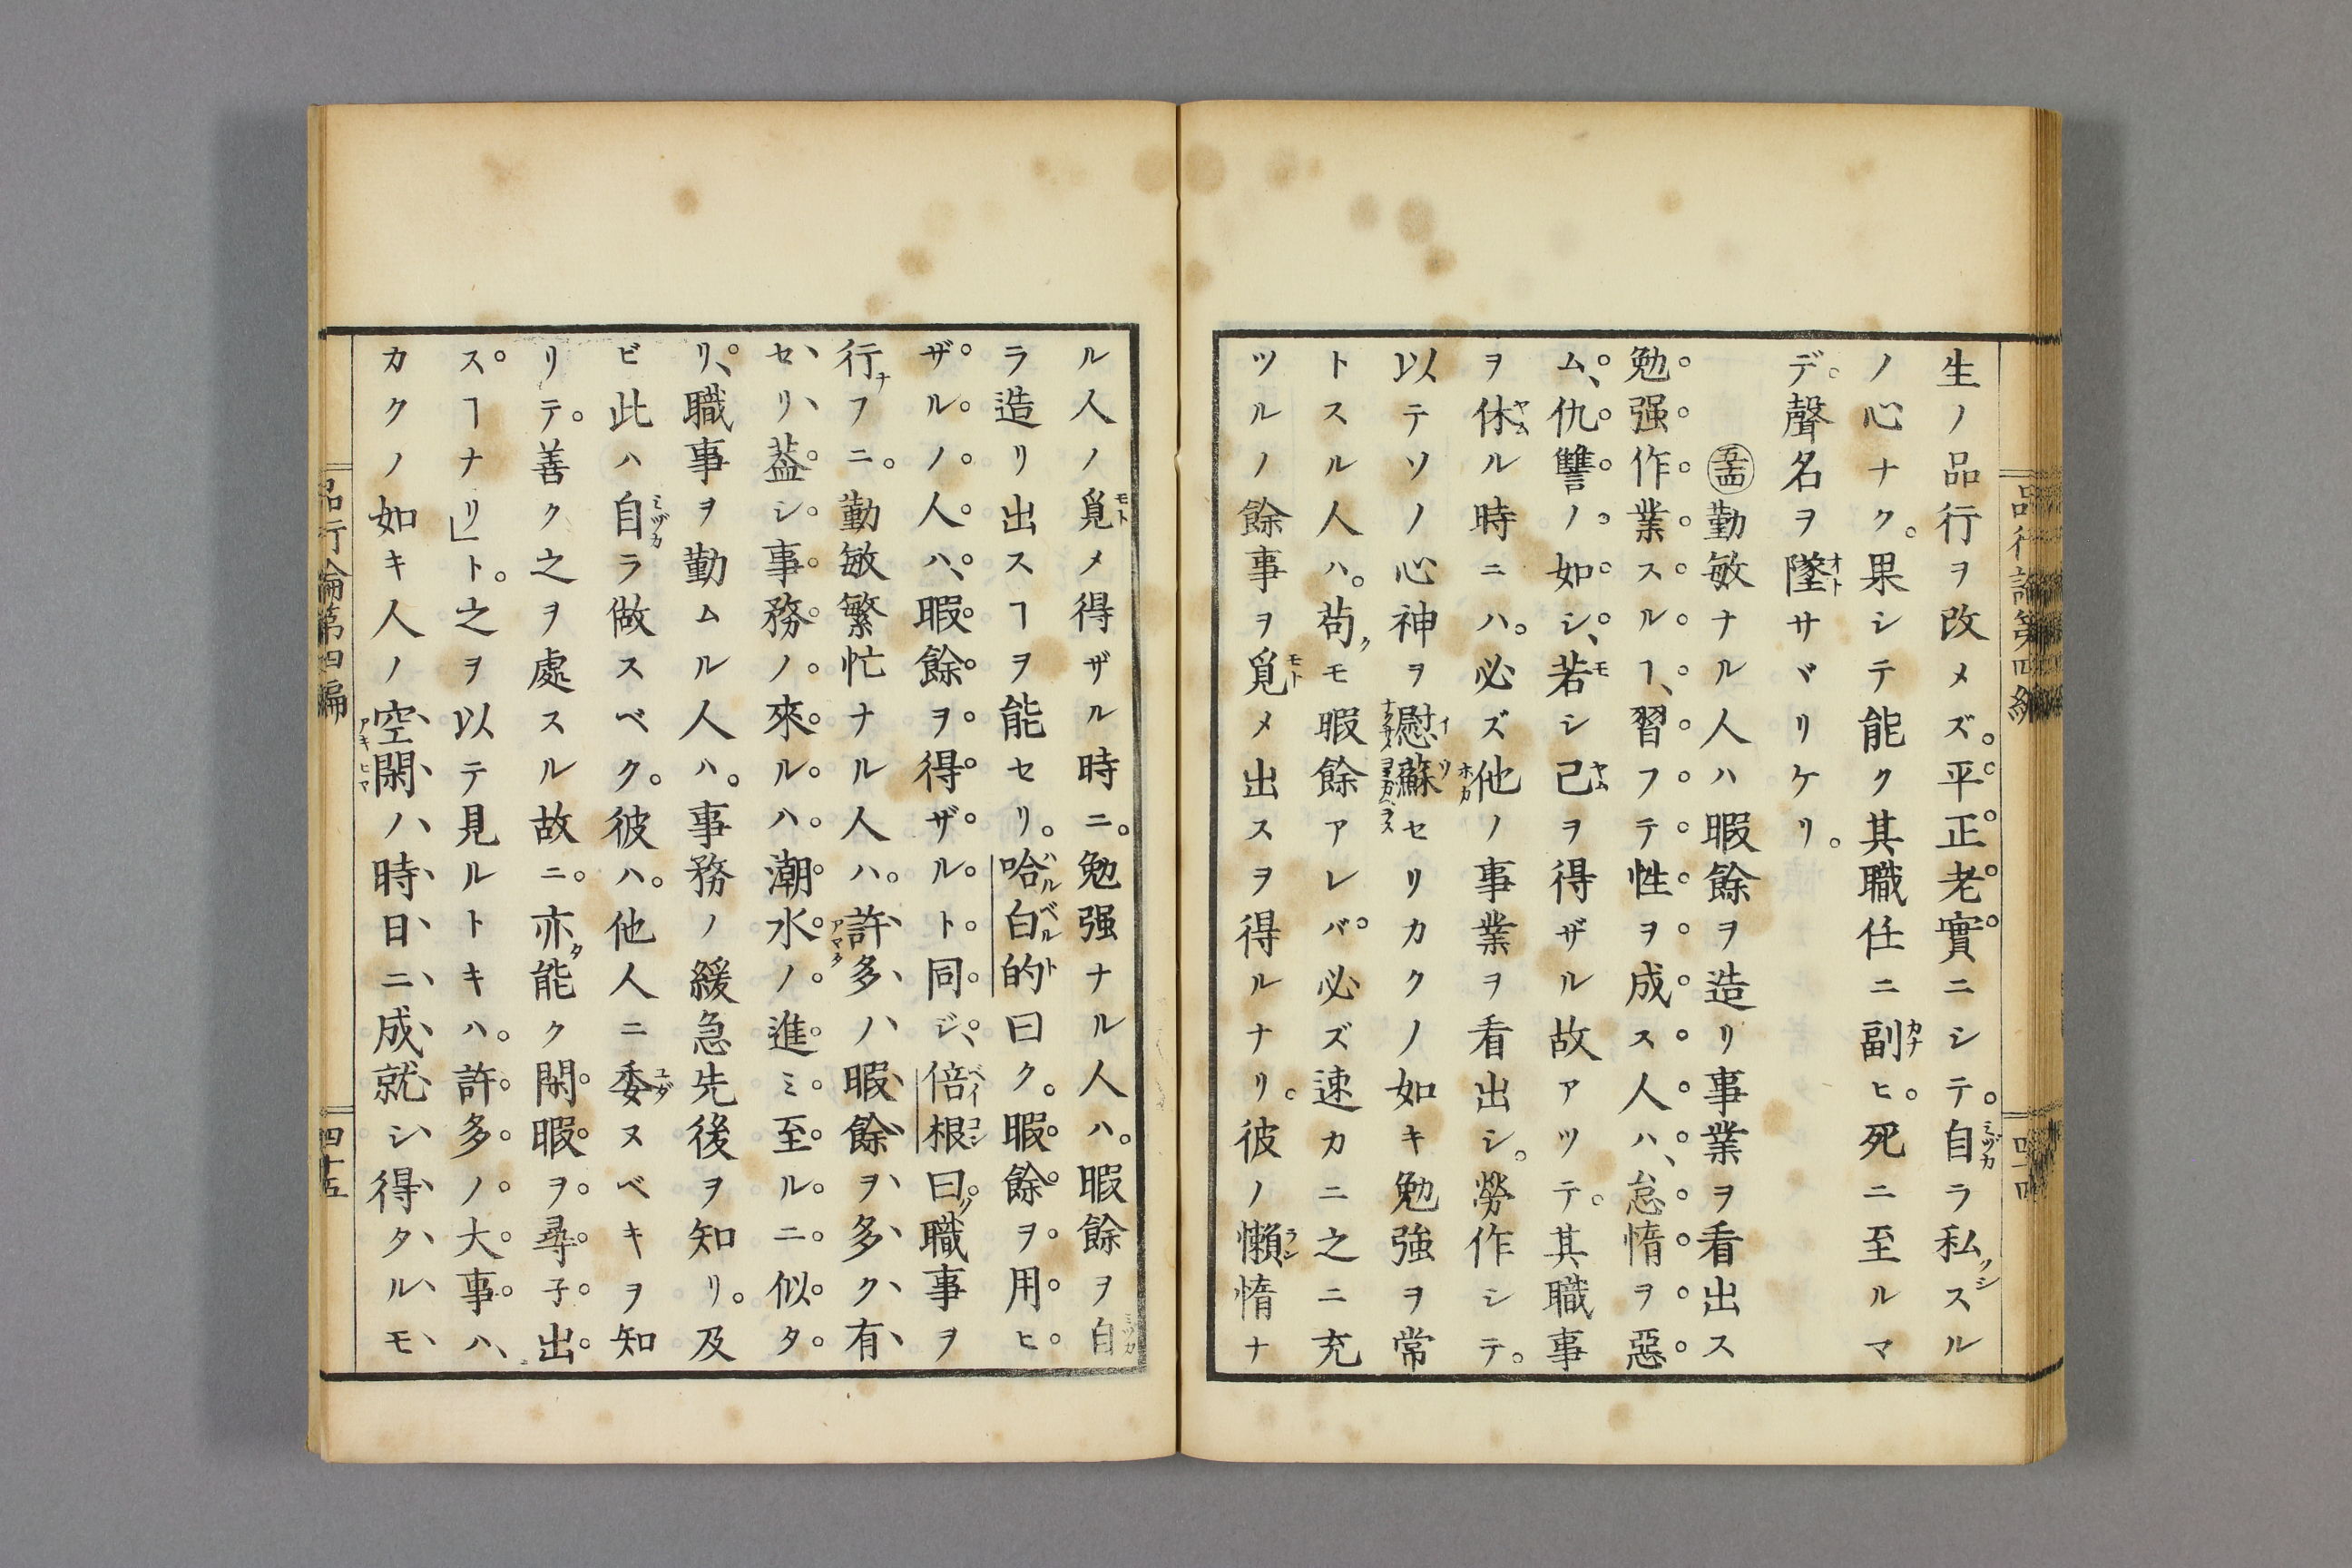 品行論第四編
四十四
生ノ品行ヲ改メズ。平正老實ニシテ。自ラ私スル
ノ心ナク。果シテ能ク其職任ニ副ヒ。死ニ至ルマ
デ。聲名ヲ墜サヾリケリ。
五十四 勤敏ナル人ハ暇餘ヲ造リ事業ヲ看出ス
勉强作業スルヿ、習フテ性ヲ成ス人ハ、怠惰ヲ惡
ム、仇讐ノ如シ、若シ已ヲ得ザル故アツテ。其職事
ヲ休ル時ニハ。必ズ他ノ事業ヲ看出シ。勞作シテ。
以テソノ心神ヲ慰蘇セリカクノ如キ勉強ヲ常
トスル人ハ。苟モ暇餘アレバ。必ズ速カニ之ニ充
ツルノ餘事ヲ覓メ出スヲ得ルナリ。彼ノ懶惰ナ
ル人ノ覓メ得ザル時ニ。勉强ナル人ハ。暇餘ヲ自
ラ造リ出スヿヲ能セリ。哈白的曰ク。暇餘ヲ用ヒ
ザルノ人ハ、暇餘ヲ得ザルト同ジ、倍根曰。職事ヲ
行フニ。勤敏繁忙ナル人ハ。許多ノ暇餘ヲ多ク有
セリ、葢シ事務ノ來ルハ潮水ノ進ミ至ルニ似タ
リ、職事ヲ勤ムル人ハ。事務ノ緩急先後ヲ知リ。及
ビ此ハ自ラ做スベク。彼ハ。他人ニ委ヌベキヲ知
リテ。善ク之ヲ處スル故ニ。亦能ク閑暇ヲ尋子出
スヿナリ」ト。之ヲ以テ見ルトキハ。許多ノ大事ハ、
カクノ如キ人ノ空閑ノ時日ニ成就シ得タルモ
品行論第四編
四十五